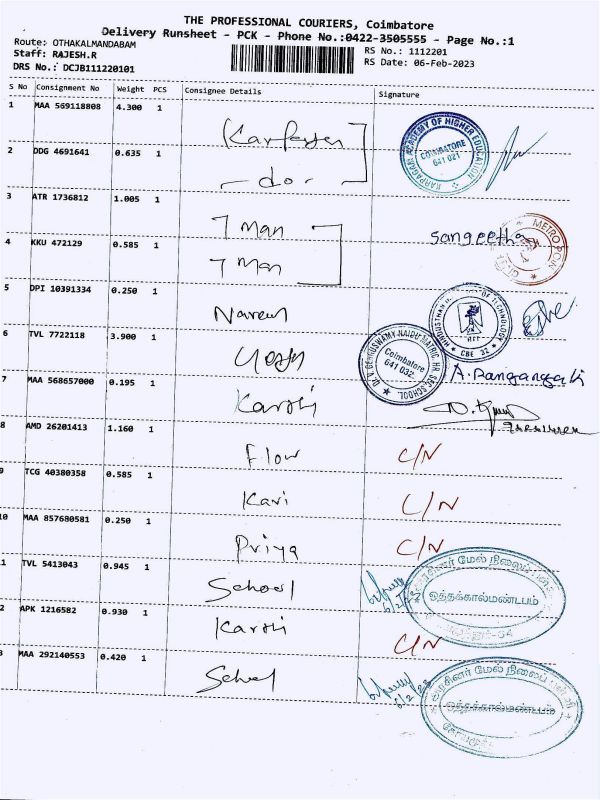 THE PROFESSIONAL COURIERS, Coimbatore
Delivery Runsheet - PCK - Phone No.:0422-3505555 - Page No.:1
Route: OTHAKALMANDABAM
RS No.: 1112201
Staff: RAJESH.R
RS Date: 06-Feb-2023
DRS No.: DCJB111220101
S No Consignment No Weight PCS Consignee Details Signature
1 MAA 569118808 4.300 1
KARPAGAM ACADEMY OF HIGHER EDUCATION
COIMBATORE
641 021
2 DDG 4691641 0.635 1 -do-
3 ATR 1736812 1.005 1 7 Man Sangeetha
METROPOLI
4 KKU 472129 0.585 1 7 Man
5 DPI 10391334 0.250 1 Naveen
HINDUSTHAN OF TECHNOLOGY
CBE 32
6 TVL 7722118 3.900 1
GENGUSWAMY NAIDU MATRIC HR. SEC. SCHOOL
Coimbatore
641 032
7 MAA 568657000 0.195 1 Karthi
8 AMD 26201413 1.160 1 Flow C/N
9 TCG 40380358 0.585 1 Kavi C/N
10 MAA 857680581 0.250 1 Priya C/N
1 TVL 5413043 0.945 1 School
மேல் நிலைப்
ஒத்தக்கால்மண்டபம்
2 APK 1216582 0.930 1 Karthi C/N
3 MAA 292140553 0.420 1 School 6/2/23
மேல் நிலைப்
ஒத்தக்கால்மண்டபம்